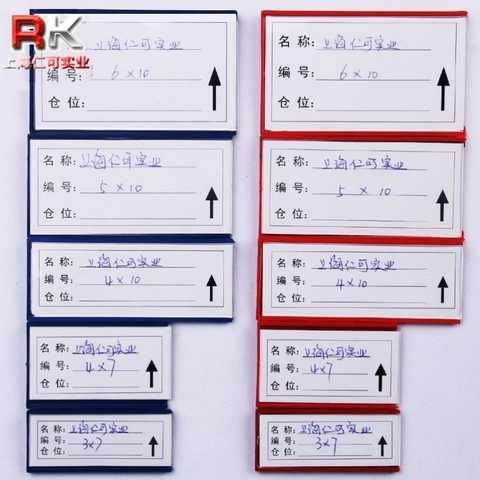 RK
上海仁可实业
名 称：上海仁可实业
编 号：6×10
仓 位：
名 称：上海仁可实业
编 号：6×10
仓 位：
名 称：上海仁可实业
编 号：5×10
仓 位：
名 称：上海仁可实业
编 号：5×10
仓 位：
名 称：上海仁可实业
编 号：4×10
仓 位：
名 称：上海仁可实业
编 号：4×10
仓 位：
名 称：上海仁可实业
编 号：4×7
仓 位：
名 称：上海仁可实业
编 号：4×7
仓 位：
名 称：上海仁可实业
编 号：3×7
仓 位：
名 称：上海仁可实业
编 号：3×7
仓 位：